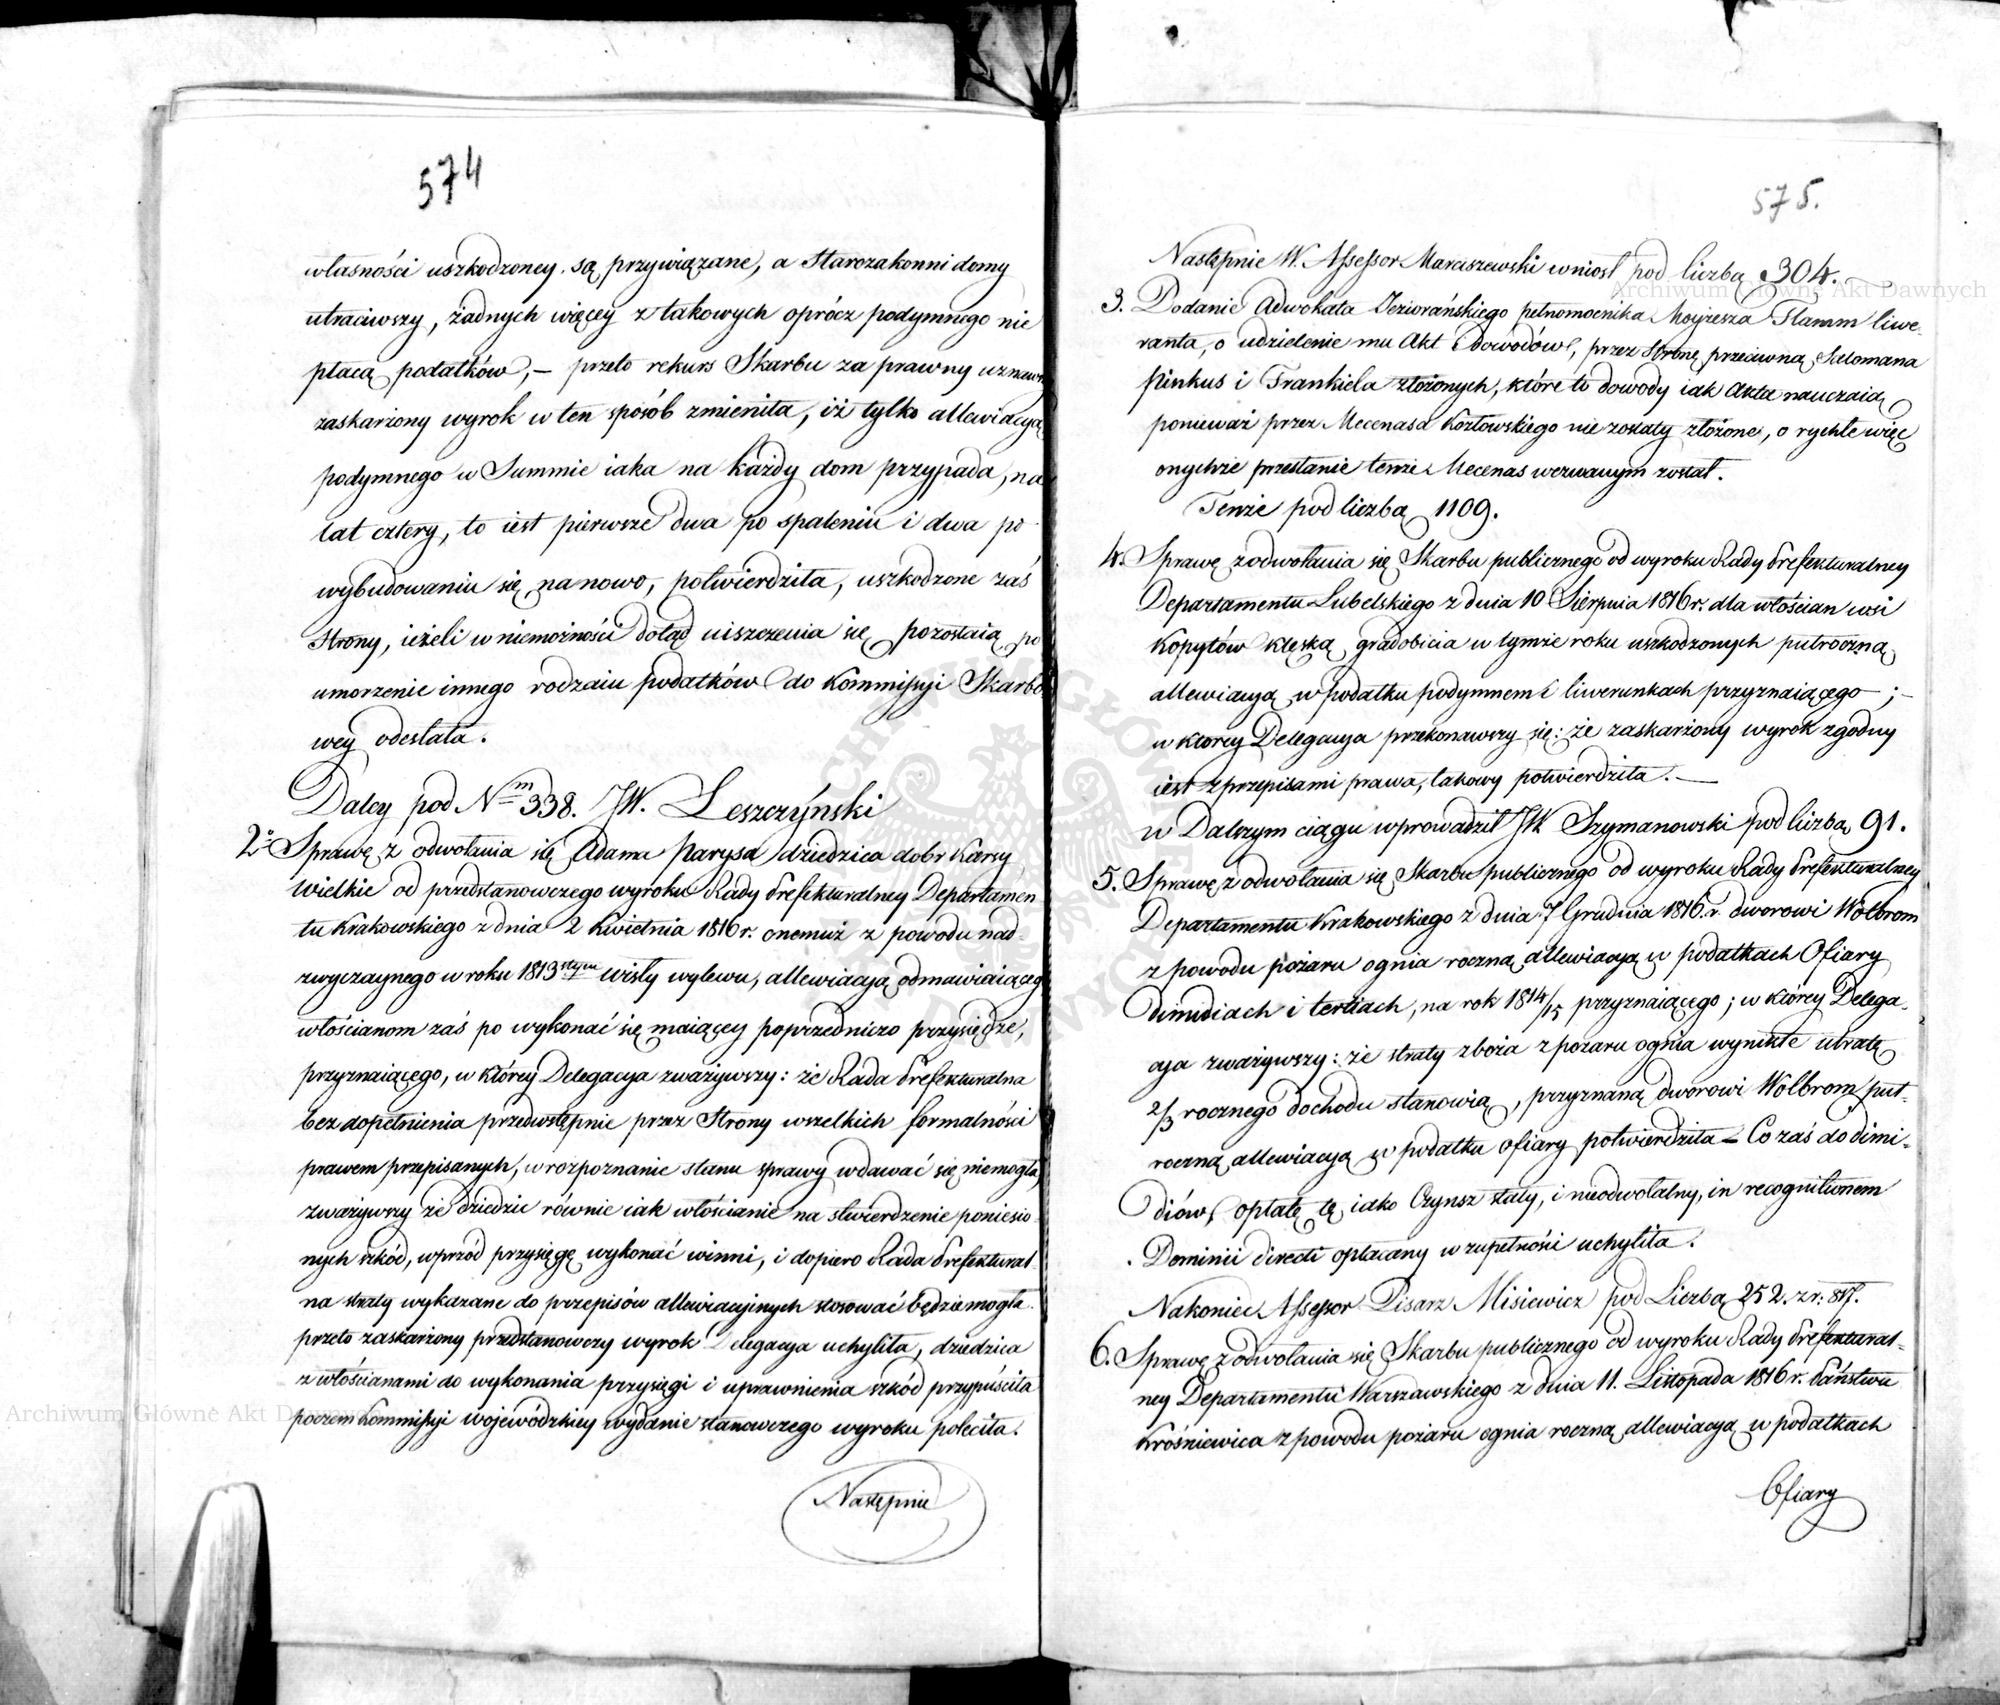 574
własności uszkodzoney są przywiązane, a Starozakonni domy
utraciwszy, żadnych więcey z takowych oprócz podymnego nie
płacą podatków, — przeto rekurs Skarbu za prawny uznawszy
zaskarżony wyrok w ten sposób zmieniła, iż tylko allewiacyą
podymnego w Summie iaka na każdy dom przypada, na
lat cztery, to iest pierwsze dwa po spaleniu i dwa po
wybudowaniu się na nowo, potwierdziła, uszkodzone zaś
Strony, ieżeli w niemożności dotąd uiszczenia się pozostaią, po
umorzenie innego rodzaiu podatków do Kommissyi Skarbo
wey odesłała.
Daley pod Nm 338. JW. Leszczyński
2o Sprawę z odwołania się Adama Parysa dziedzica dobr Karsy
wielkie od przedstanowczego wyroku Rady Prefekturalney Departamen
tu Krakowskiego z dnia 2 Kwietnia 1816 r. onemuż z powodu nad-
zwyczaynego w roku 1813stym wisły wylewu, allewiacyą odmawiaiącego
włościanom zaś po wykonać się maiącey poprzedniczo przysiędze,
przyznaiącego, w którey Delegacya zważywszy: że Rada Prefekturalna
bez dopełnienia przedwstępnie przez Strony wszelkich formalności
prawem przepisanych, w rozpoznanie stanu sprawy wdawać się niemogła,
zważywszy że dziedzic równie iak włościanie na stwierdzenie poniesio
nych szkód, wprzód przysięgę wykonać winni, i dopiero Rada Prefektural-
na straty wykazane do przepisów allewiacyinych stosować będzie mogła.
przeto zaskarżony przedstanowczy wyrok Delegacya uchyliła, dziedzica
z włościanami do wykonania przysięgi i uprawnienia szkód przypuściła
poczem Kommissyi wojewódzkiey wydanie stanowczego wyroku poleciła.
Następnie
575.
Następnie W. Assessor Marciszewski wniosł pod liczbą 304.
3. Podanie Adwokata Jeziorańskiego pełnomocnika Moyżesza Flamm liwe-
ranta, o udzielenie mu Akt i dowodów, przez Stronę przeciwną Salomana
Pinkus i Frankiela złożonych, które to dowody iak Akta nauczaią
ponieważ przez Mecenasa Kozłowskiego nie zostały złożone, o rychłe więc
onychże przesłanie tenże Mecenas wezwanym został.
Tenże pod liczbą 1109.
4. Sprawę z odwołania się Skarbu publicznego od wyroku Rady Prefekturalney
Departamentu Lubelskiego z dnia 10 Sierpnia 1816 r. dla włościan wsi
Kopytów klęską gradobicia w tymże roku uszkodzonych pułroczną
allewiacyą w podatku podymnem i liwerunkach przyznaiącego; —
w którey Delegacya przekonawszy się: że zaskarżony wyrok zgodny
iest z przepisami prawa, takowy potwierdziła. —
w Dalszym ciągu wprowadził JW Szymanowski pod liczbą 91.
5. Sprawę z odwołania się Skarbu publicznego od wyroku Rady Prefekturalney
Departamentu Krakowskiego z dnia 7 Grudnia 1816. r. dworowi Wolbrom
z powodu pożaru ognia roczną allewiacyą w podatkach Ofiary
Dimidiach i tertiach, na rok 1814/15 przyznaiącego; w którey Delega-
cya zważywszy: że straty zboża z pożaru ognia wynikłe utratę
2/3 rocznego dochodu stanowią, przyznaną dworowi Wolbrom puł-
roczną allewiacyą w podatku ofiary potwierdziła — Co zaś do dimi-
diów, opłatę tę iako Czynsz stały, i nieodwołalny, in recognitionem
Dominii directi opłacany w zupełności uchyliła.
Nakoniec Assessor Pisarz Misiewicz pod Liczbą 252. z r. 817.
6. Sprawę z odwołania się Skarbu publicznego od wyroku Rady Prefektural-
ney Departamentu Warszawskiego z dnia 11. Listopada 1816 r. Państwu
Krośniewica z powodu pożaru ognia roczną allewiacyą w podatkach
Ofiary
Archiwum Główne Akt Dawnych
Archiwum Główne Akt D